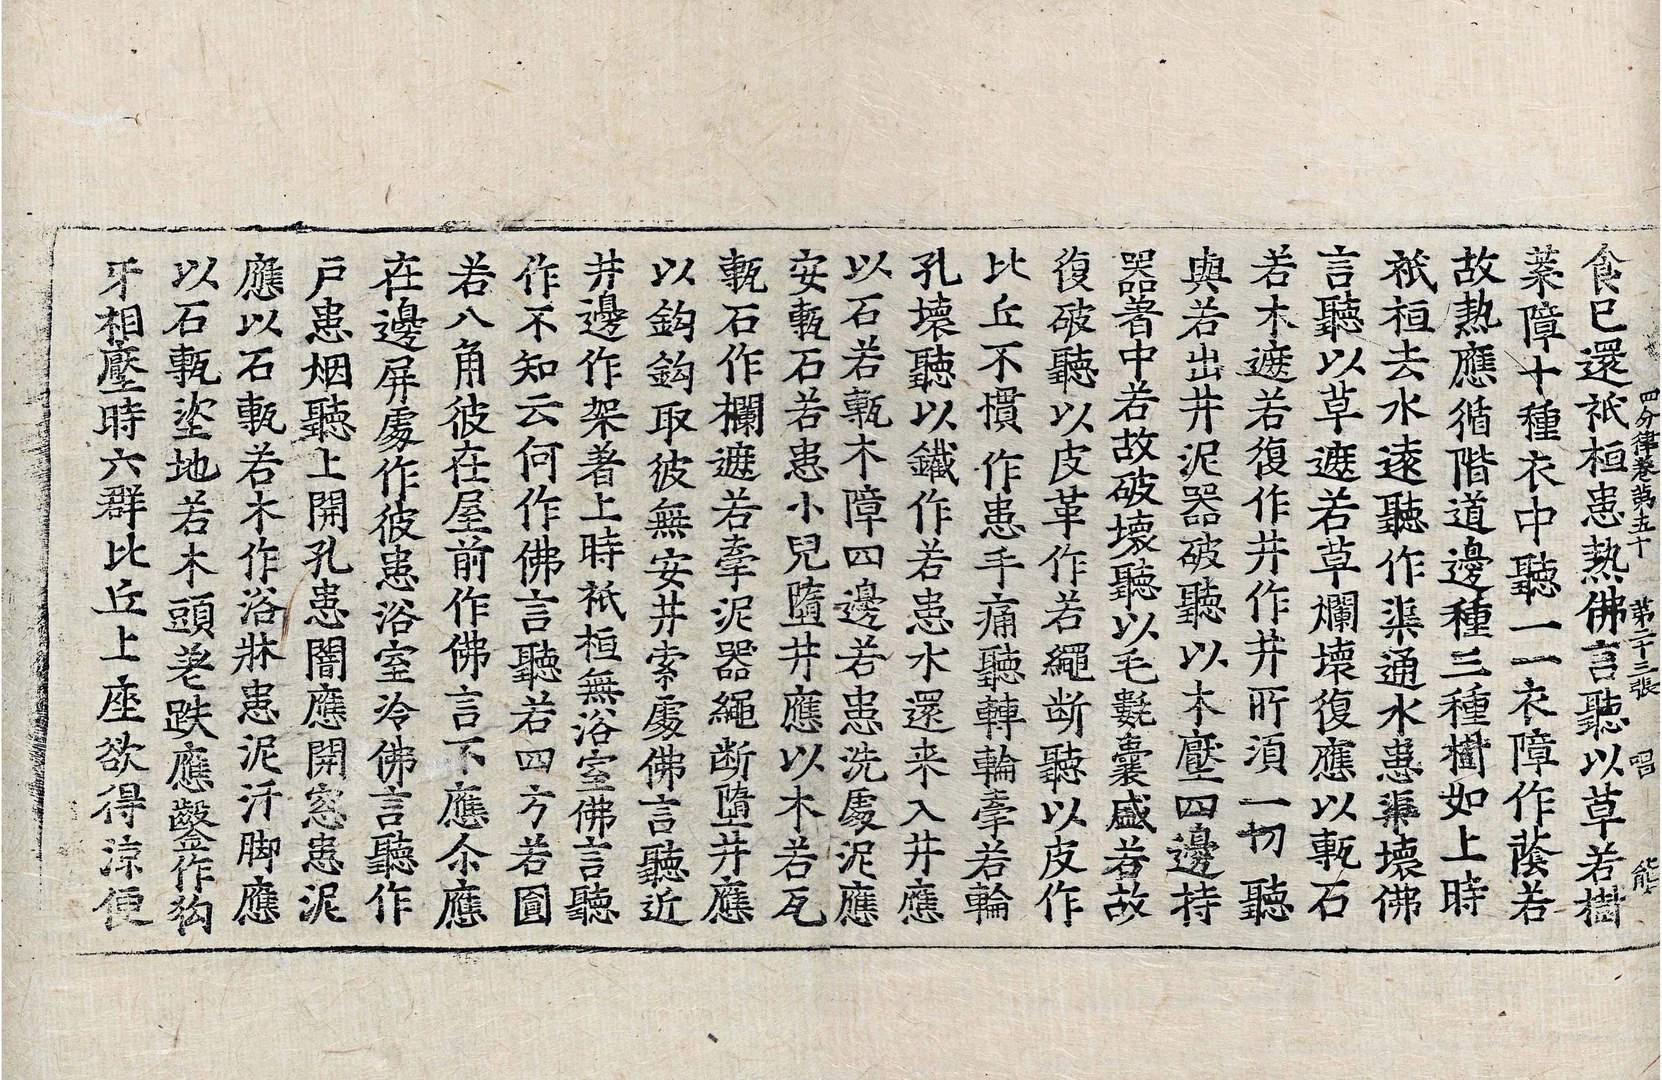 四分律卷第五十 第二十三張 唱 能
食已還祇桓患熱佛言聽以草若樹
葉障十種衣中聽一一衣障作蔭若
故熱應循階道邊種三種樹如上時
祇桓去水遠聽作渠通水患渠壞佛
言聽以草遮若草爛壞復應以甎石
若木遮若復作井作井所須一切聽
與若出井泥器破聽以木壓四邊持
器著中若故破壞聽以毛㲲囊盛若故
復破聽以皮革作若繩断聽以皮作
比丘不慣作患手痛聽轉輪牽若輪
孔壞聽以鐵作若患水還来入井應
以石若甎木障四邊若患洗處泥應
安甎石若患小兒墮井應以木若瓦
甎石作欄遮若牽泥器繩断墮井應
以鈎鈎取彼無安井索處佛言聽近
井邊作架著上時祇桓無浴室佛言聽
作不知云何作佛言聽若四方若圓
若八角彼在屋前作佛言不應尒應
在邊屏處作彼患浴室冷佛言聽作
戸患烟聽上開孔患闇應開窓患泥
應以石甎若木作浴牀患泥汙脚應
以石甎埿地若木頭差跌應鑿作狗
牙相壓時六群比丘上座欲得涼便